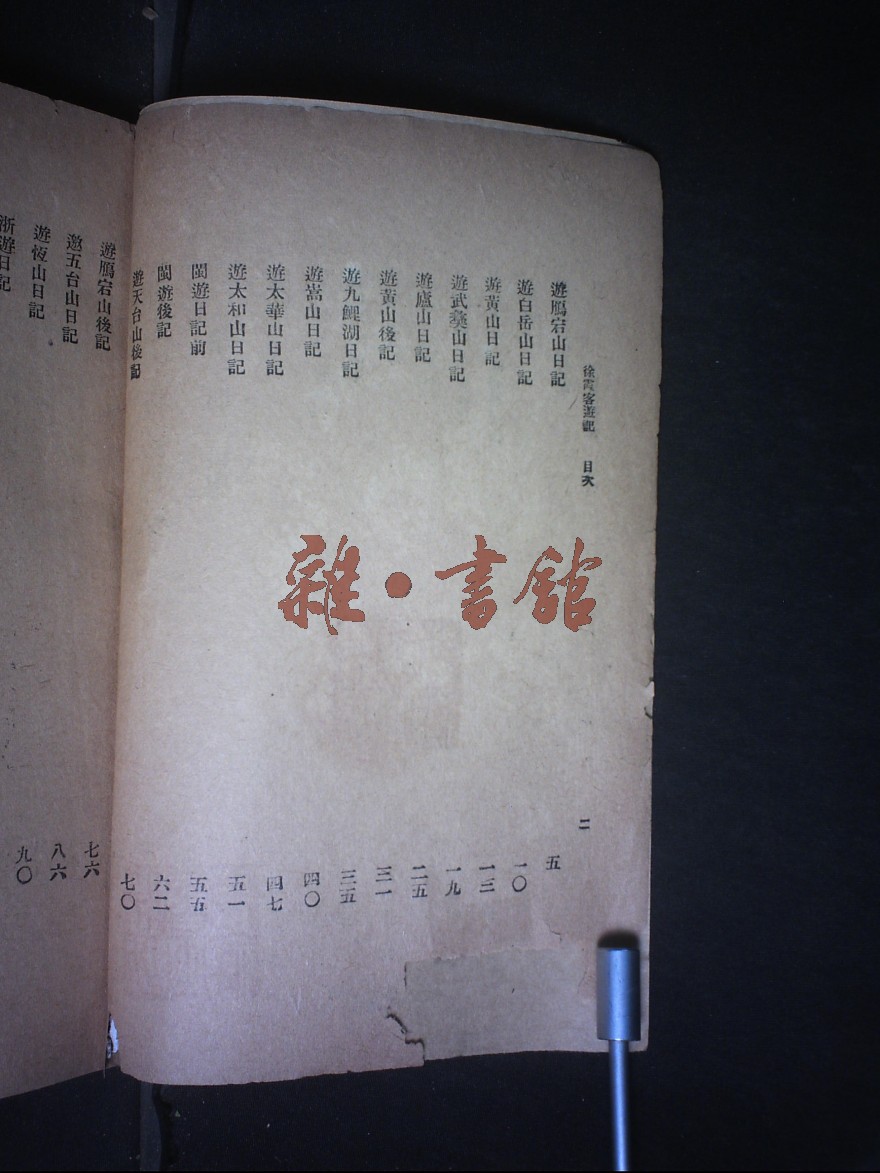 徐霞客遊記 目次 二
遊鴈宕山日記 五
遊白岳山日記 一〇
遊黃山日記 一三
遊武彞山日記 一九
遊廬山日記 二五
遊黃山後記 三一
遊九鯉湖日記 三五
遊嵩山日記 四〇
遊太華山日記 四七
遊太和山日記 五一
閩遊日記前 五五
閩遊後記 六二
遊天台山後記 七〇
遊鴈宕山後記 七六
遊五台山日記 八六
遊恆山日記 九〇
浙遊日記
雜•書館